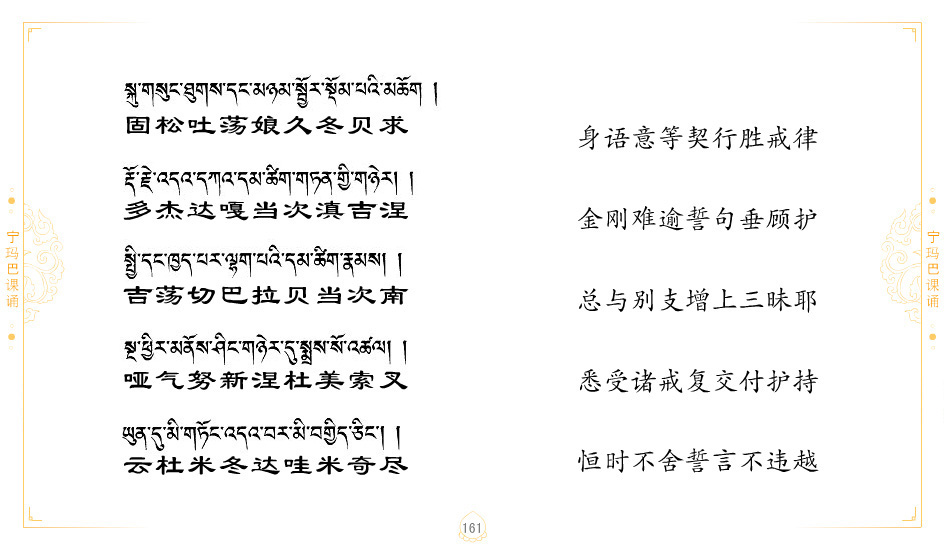 སྐུ་གསུང་ཐུགས་དང་མཉམ་སྦྱོར་སྡོམ་པའི་མཆོག །
固松吐荡娘久冬贝求
རྡོ་རྗེ་འདའ་དཀའ་དམ་ཚིག་གཏན་གྱི་གཉེར། །
多杰达嘎当次滇吉涅
སྤྱི་དང་ཁྱད་པར་ལྷག་པའི་དམ་ཚིག་རྣམས། །
吉荡切巴拉贝当次南
སྔ་ཕྱིར་མནོས་ཤིང་གཉེར་དུ་སྨྲས་སོ་འཚལ། །
哑气努新涅杜美索叉
ཡུན་དུ་མི་གཏོང་འདའ་བར་མི་བགྱིད་ཅིང་། །
云杜米冬达哇米奇尽
身语意等契行胜戒律
金刚难逾誓句垂顾护
总与别支增上三昧耶
悉受诸戒复交付护持
恒时不舍誓言不违越
宁玛巴课诵
宁玛巴课诵
161